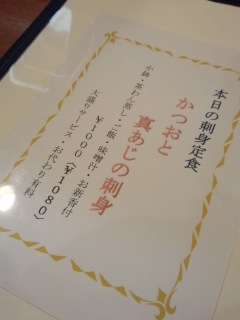 本日の刺身定食
かつおと
真あじの刺身
小鉢・茶わん蒸し・ご飯・味噌汁・お新香付
¥1000（¥1080）
大盛りサービス・お代わり有料